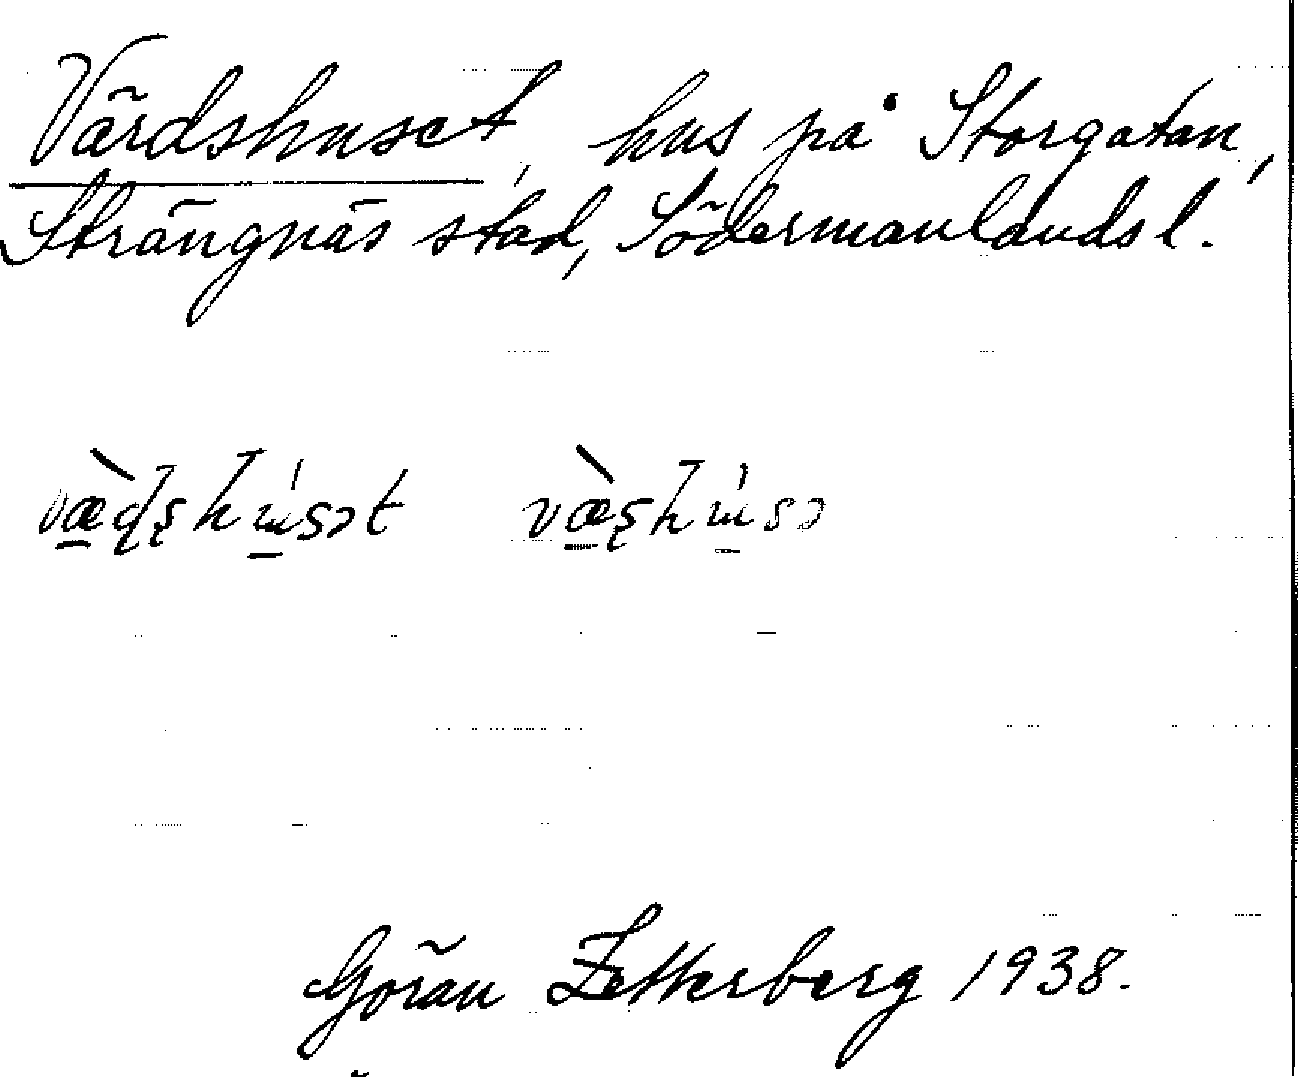 Värdshuset, hus på Storgatan,
Strängnäs stad, Södermanlands l.
væ̀ɖʂhɯ́sɔt væ̀ʂhɯ́sɔ
Göran Zetterberg 1938.